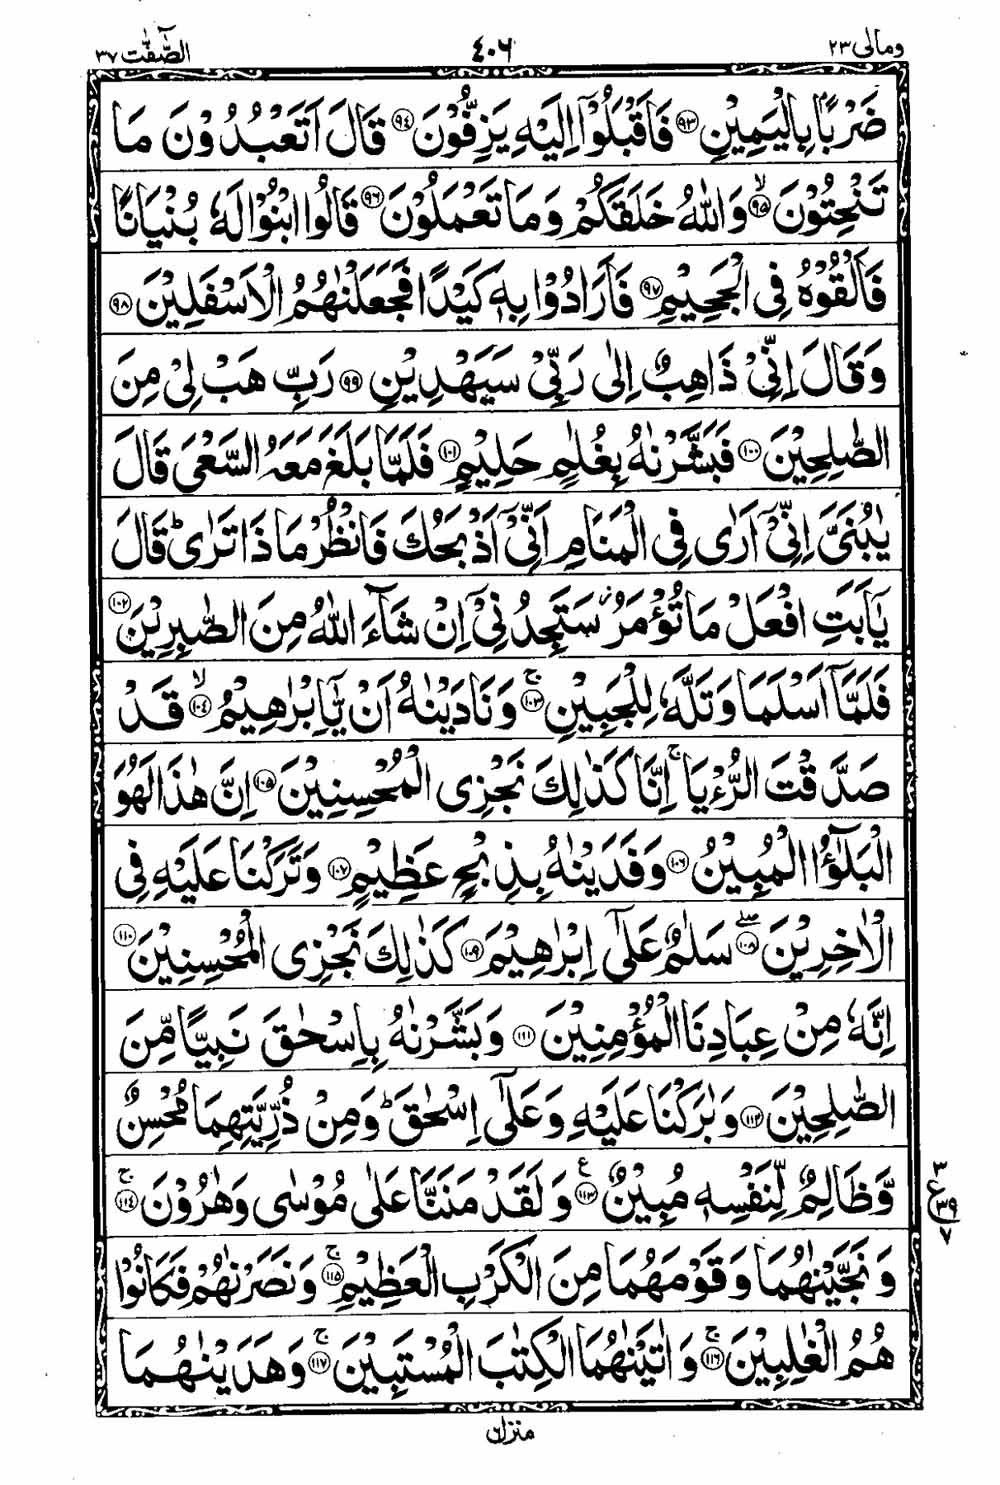 ومالی ۲۳ ٤٠٦ الصّٰٓفّٰت ۳۷
ضَرْبًۢا بِالْيَمِيْنِ ﴿۹۳﴾ فَاَقْبَلُوْۤا اِلَيْهِ يَزِفُّوْنَ ﴿۹٤﴾ قَالَ اَتَعْبُدُوْنَ مَا
تَنْحِتُوْنَ ۙ﴿۹۵﴾ وَاللّٰهُ خَلَقَكُمْ وَمَا تَعْمَلُوْنَ ﴿۹۶﴾ قَالُوا ابْنُوْا لَهٗ بُنْيَانًا
فَاَلْقُوْهُ فِى الْجَحِيْمِ ﴿۹۷﴾ فَاَرَادُوْا بِهٖ كَيْدًا فَجَعَلْنٰهُمُ الْاَسْفَلِيْنَ ﴿۹۸﴾
وَقَالَ اِنِّىْ ذَاهِبٌ اِلٰى رَبِّىْ سَيَهْدِيْنِ ﴿۹۹﴾ رَبِّ هَبْ لِىْ مِنَ
الصّٰلِحِيْنَ ﴿۱۰۰﴾ فَبَشَّرْنٰهُ بِغُلٰمٍ حَلِيْمٍ ﴿۱۰۱﴾ فَلَمَّا بَلَغَ مَعَهُ السَّعْىَ قَالَ
يٰبُنَىَّ اِنِّىْۤ اَرٰى فِى الْمَنَامِ اَنِّىْۤ اَذْبَحُكَ فَانْظُرْ مَاذَا تَرٰىؕ قَالَ
يٰۤاَبَتِ افْعَلْ مَا تُؤْمَرُ سَتَجِدُنِىْۤ اِنْ شَآءَ اللّٰهُ مِنَ الصّٰبِرِيْنَ ﴿۱۰۲﴾
فَلَمَّاۤ اَسْلَمَا وَتَلَّهٗ لِلْجَبِيْنِ ۚ﴿۱۰۳﴾ وَنَادَيْنٰهُ اَنْ يّٰۤاِبْرٰهِيْمُ ۙ﴿۱۰٤﴾ قَدْ
صَدَّقْتَ الرُّءْيَا ۚ اِنَّا كَذٰلِكَ نَجْزِى الْمُحْسِنِيْنَ ﴿۱۰۵﴾ اِنَّ هٰذَا لَهُوَ
الْبَلٰٓؤُا الْمُبِيْنُ ﴿۱۰۶﴾ وَفَدَيْنٰهُ بِذِبْحٍ عَظِيْمٍ ﴿۱۰۷﴾ وَتَرَكْنَا عَلَيْهِ فِى
الْاٰخِرِيْنَ ۖ﴿۱۰۸﴾ سَلٰمٌ عَلٰٓى اِبْرٰهِيْمَ ﴿۱۰۹﴾ كَذٰلِكَ نَجْزِى الْمُحْسِنِيْنَ ﴿۱۱۰﴾
اِنَّهٗ مِنْ عِبَادِنَا الْمُؤْمِنِيْنَ ﴿۱۱۱﴾ وَبَشَّرْنٰهُ بِاِسْحٰقَ نَبِيًّا مِّنَ
الصّٰلِحِيْنَ ﴿۱۱۲﴾ وَبٰرَكْنَا عَلَيْهِ وَعَلٰٓى اِسْحٰقَؕ وَمِنْ ذُرِّيَّتِهِمَا مُحْسِنٌ
وَّظَالِمٌ لِّنَفْسِهٖ مُبِيْنٌ ﴿۱۱۳﴾ع وَلَقَدْ مَنَنَّا عَلٰى مُوْسٰى وَهٰرُوْنَ ۚ﴿۱۱٤﴾
۳ ع ۳۹ ۷
وَنَجَّيْنٰهُمَا وَقَوْمَهُمَا مِنَ الْكَرْبِ الْعَظِيْمِ ۚ﴿۱۱۵﴾ وَنَصَرْنٰهُمْ فَكَانُوْا
هُمُ الْغٰلِبِيْنَ ۚ﴿۱۱۶﴾ وَاٰتَيْنٰهُمَا الْكِتٰبَ الْمُسْتَبِيْنَ ۚ﴿۱۱۷﴾ وَهَدَيْنٰهُمَا
منزل ٦